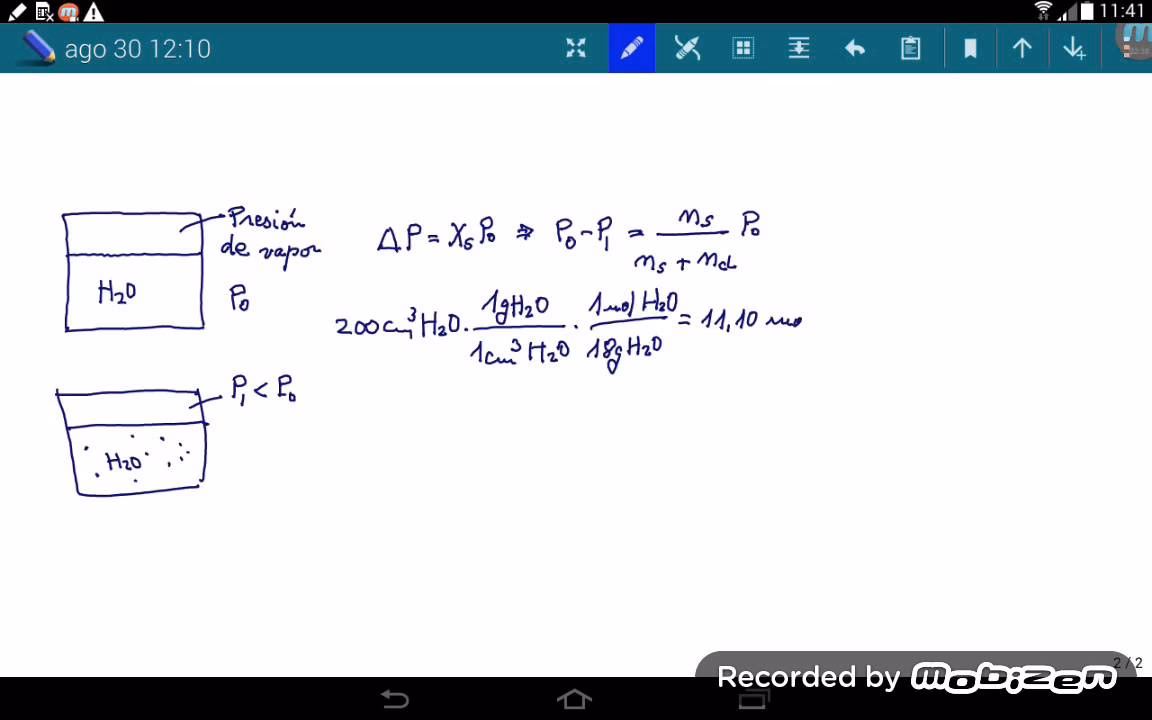 11:41
ago 30 12:10
Presión
de vapor
H₂O
P₀
ΔP = Xₛ P₀ ⇒ P₀ - P₁ = nₛ / (nₛ + nd) P₀
200 cm³ H₂O · 1g H₂O / 1cm³ H₂O · 1 mol H₂O / 18g H₂O = 11,10 mo
P₁ < P₀
H₂O
2 / 2
Recorded by mobizen